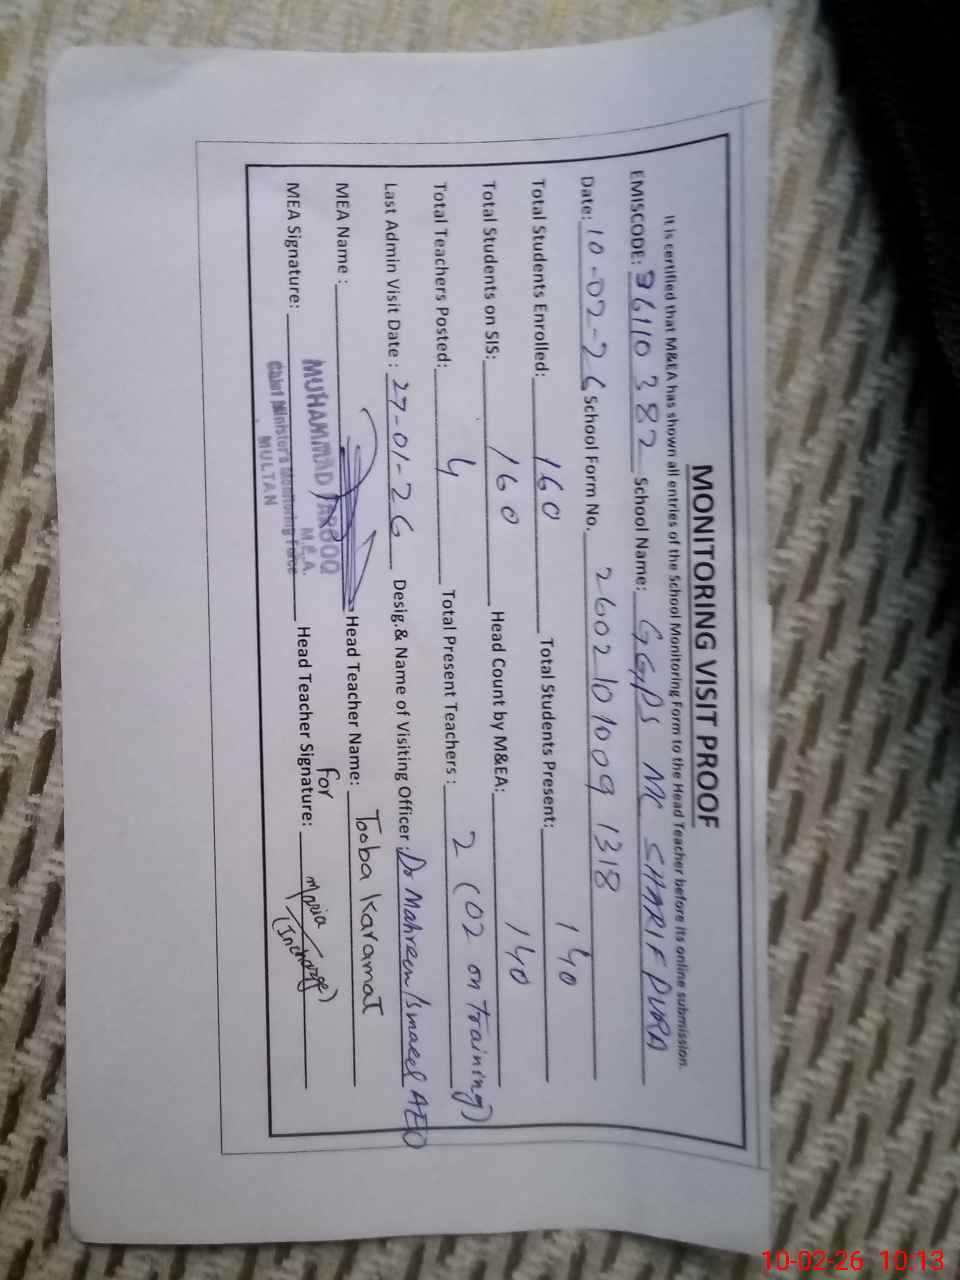 MONITORING VISIT PROOF
It is certified that M&EA has shown all entries of the School Monitoring Form to the Head Teacher before its online submission.
EMISCODE: 36110382 School Name: GGPS MC SHARIF PURA
Date: 10-02-26 School Form No. 2602101009 1318
Total Students Enrolled: 160 Total Students Present: 140
Total Students on SIS: 160 Head Count by M&EA: 140
Total Teachers Posted: 4 Total Present Teachers : 2 (02 on training)
Last Admin Visit Date : 27-01-26 Desig.& Name of Visiting Officer : Dr Mahreen Ismaeel AEO
MEA Name : Head Teacher Name: Tooba Karamat
MUHAMMAD FAROOQ
M.E.A.
For
MEA Signature: Head Teacher Signature: Maria
(Incharge)
Chief Minister's Monitoring Force
MULTAN
10-02-26 10:13